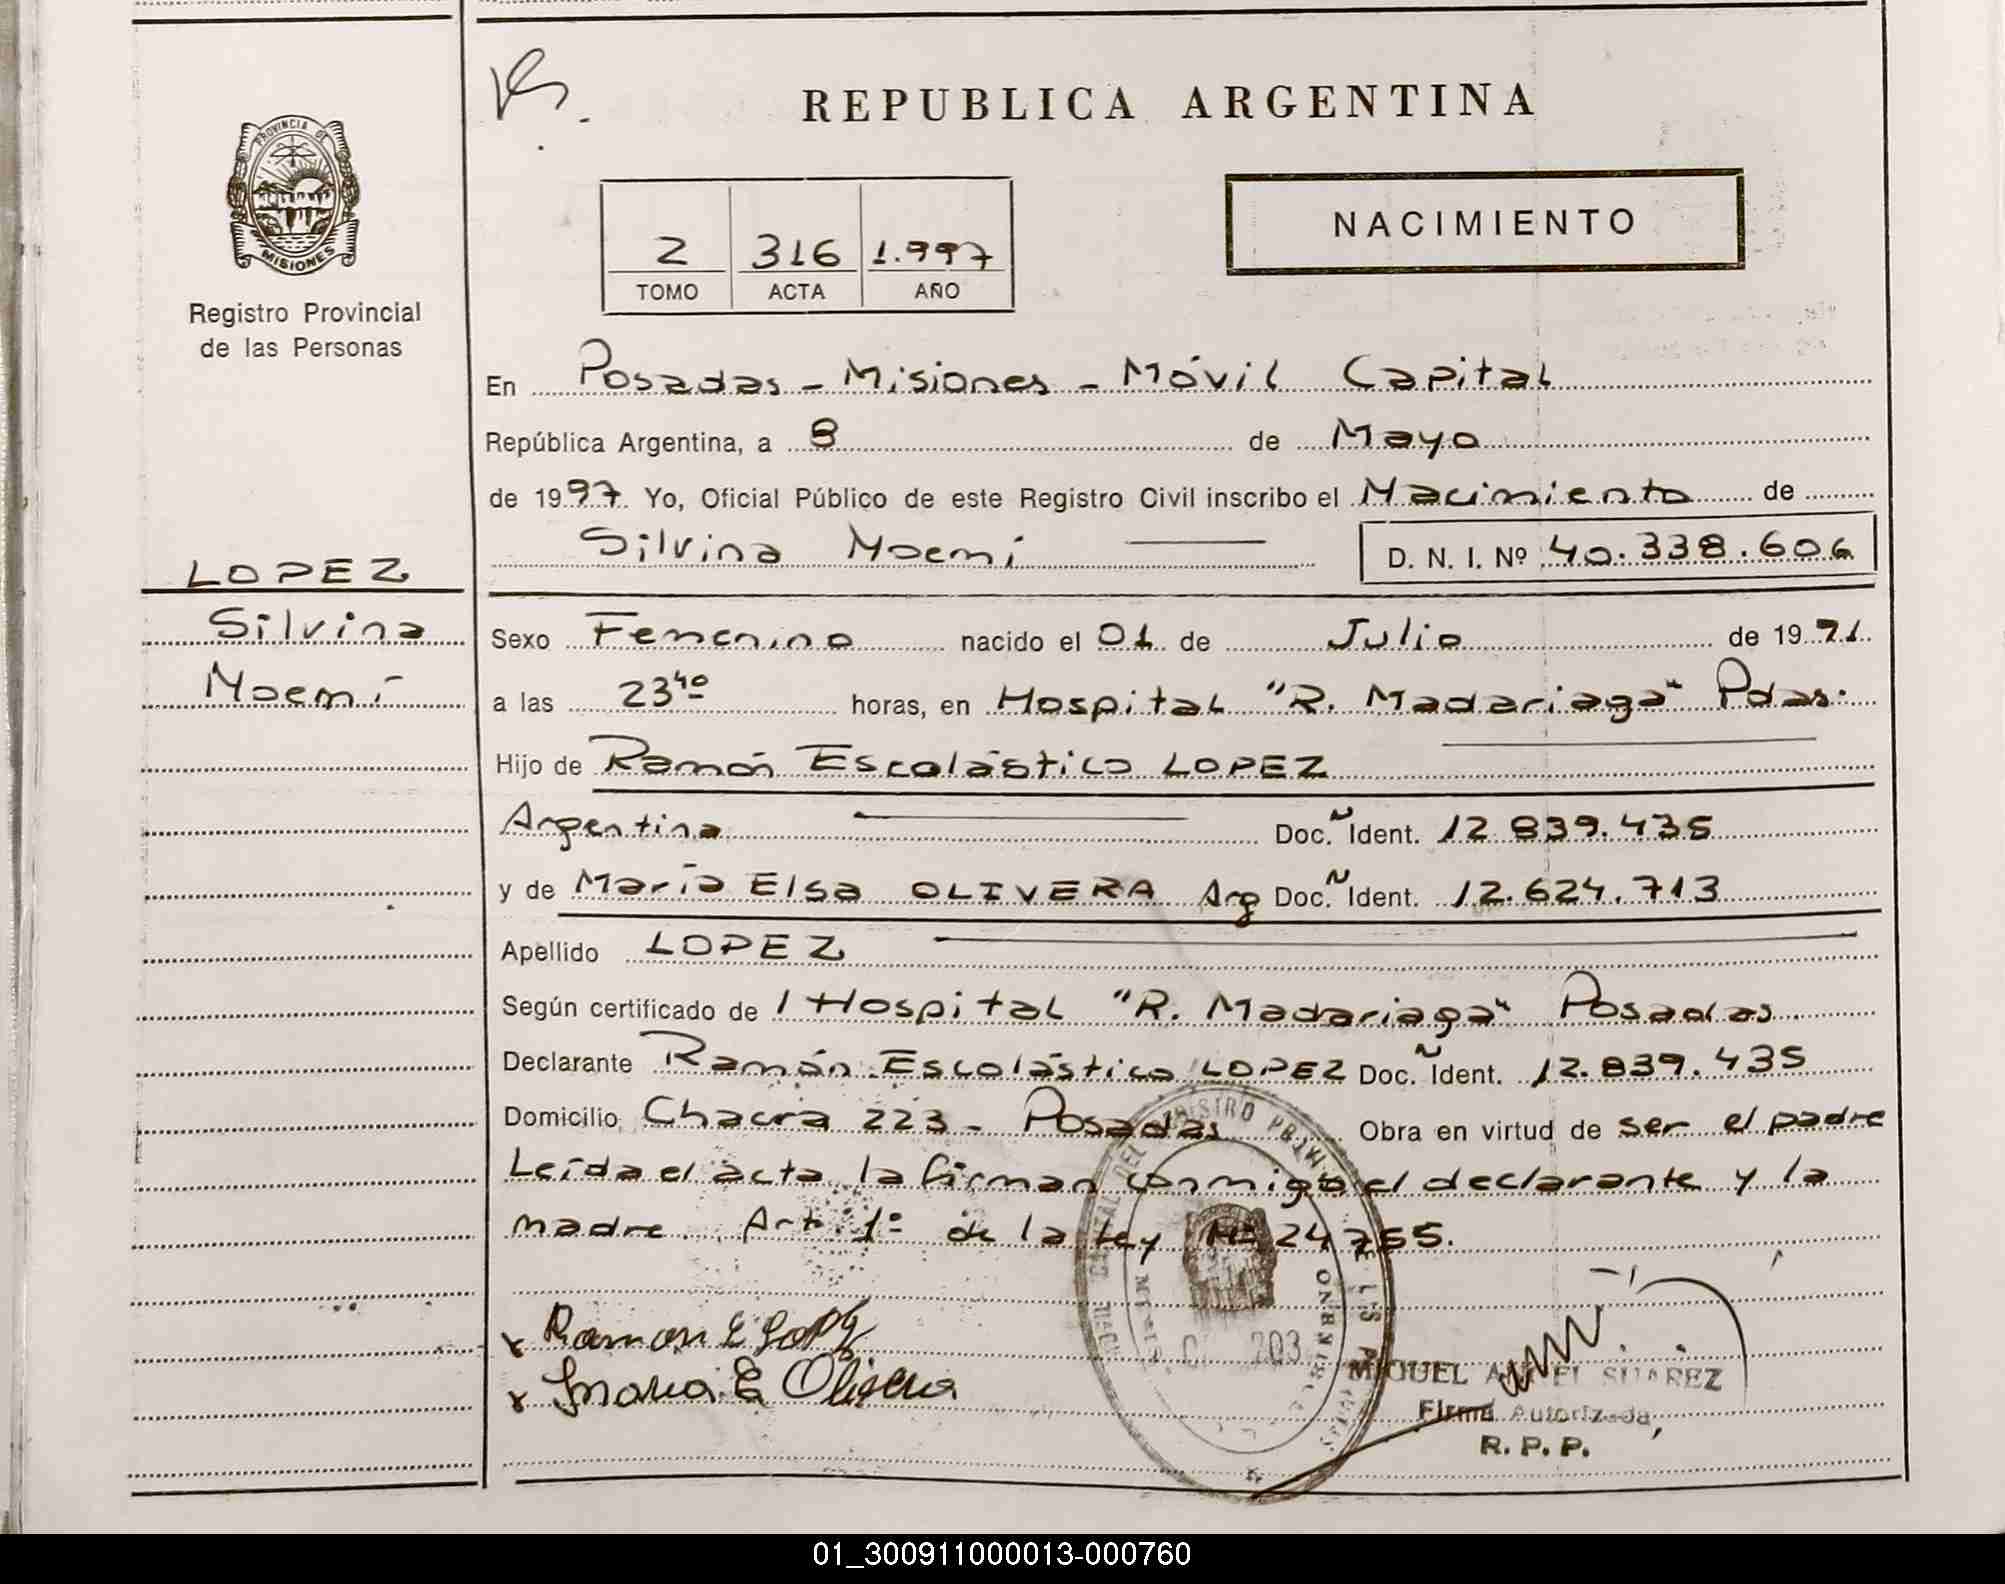 REPUBLICA ARGENTINA
PROVINCIA DE
MISIONES
Registro Provincial
de las Personas
NACIMIENTO
2 316 1.997
TOMO ACTA AÑO
En Posadas - Misiones - Móvil Capital
República Argentina, a 8 de Mayo
de 1997 Yo, Oficial Público de este Registro Civil inscribo el Nacimiento de
Silvina Noemí D. N. I. Nº 40.338.606
LOPEZ
Silvina
Noemí
Sexo Femenino nacido el 01 de Julio de 1991
a las 23⁴⁰ horas, en Hospital "R. Madariaga" Pdas.
Hijo de Ramón Escolástico LOPEZ
Argentina Doc. Ident. 12.839.435
y de María Elsa OLIVERA Arg Doc. Ident. 12.624.713
Apellido LOPEZ
Según certificado de l Hospital "R. Madariaga" Posadas
Declarante Ramón Escolástico LOPEZ Doc. Ident. 12.839.435
Domicilio Chacra 223 - Posadas Obra en virtud de ser el padre
Leída el acta la firman conmigo el declarante y la
madre. Art. 1º de la Ley Nº 24.755.
Ramon E Lopez
Maria E Olivera
MIGUEL ANGEL SUAREZ
Firma Autorizada
R. P. P.
01_300911000013-000760